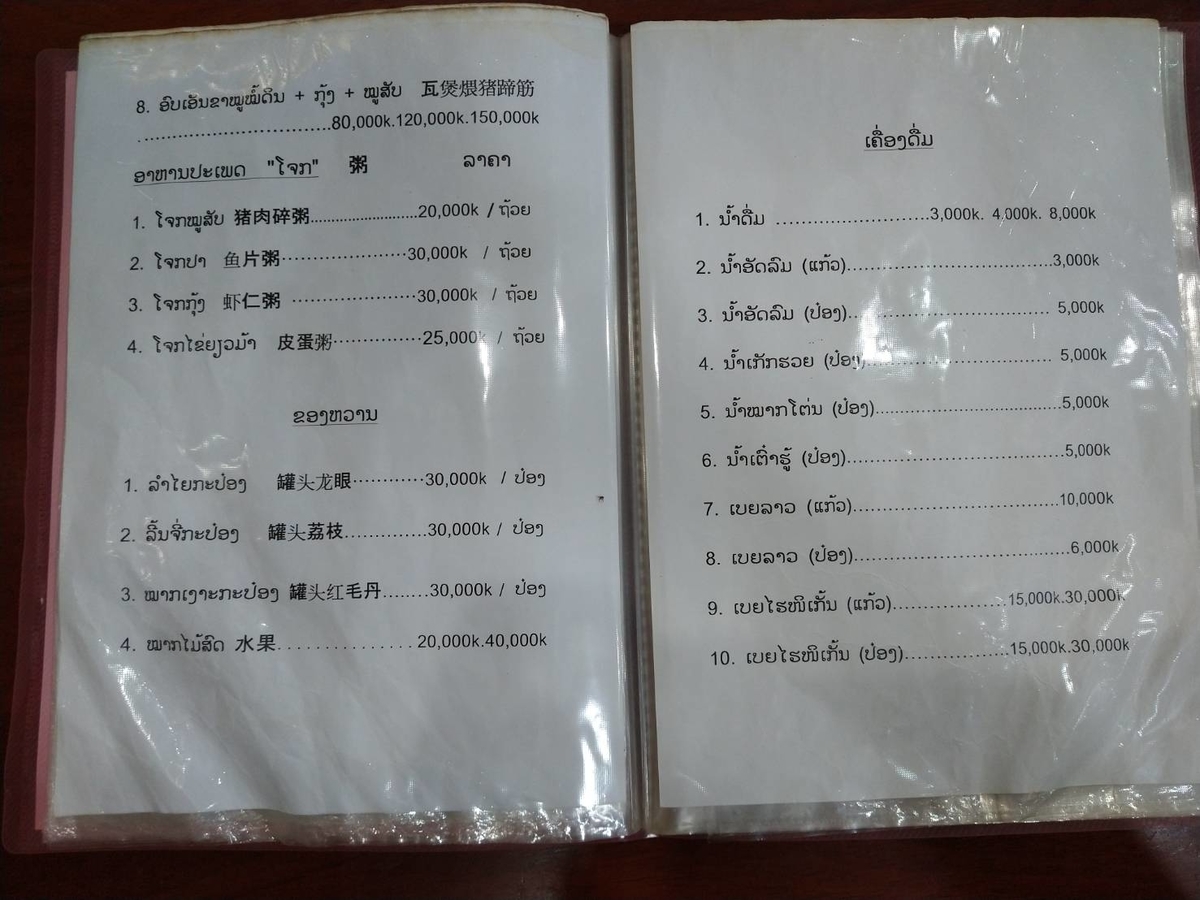 8. ອົບເອັນຂາໝູໝໍ້ດິນ + ກຸ້ງ + ໝູສັບ 瓦煲煨猪蹄筋
..................................80,000k.120,000k.150,000k
ອາຫານປະເພດ "ໂຈກ" 粥 ລາຄາ
1. ໂຈກໝູສັບ 猪肉碎粥..........................20,000k / ຖ້ວຍ
2. ໂຈກປາ 鱼片粥......................30,000k / ຖ້ວຍ
3. ໂຈກກຸ້ງ 虾仁粥 ......................30,000k / ຖ້ວຍ
4. ໂຈກໄຂ່ຍຽວມ້າ 皮蛋粥................25,000k / ຖ້ວຍ
ຂອງຫວານ
1. ລຳໄຍກະປ໋ອງ 罐头龙眼............30,000k / ປ໋ອງ
2. ລີ້ນຈີ່ກະປ໋ອງ 罐头荔枝..............30,000k / ປ໋ອງ
3. ໝາກເງາະກະປ໋ອງ 罐头红毛丹........30,000k / ປ໋ອງ
4. ໝາກໄມ້ສົດ 水果................20,000k.40,000k
ເຄື່ອງດື່ມ
1. ນ້ຳດື່ມ ............................3,000k. 4,000k. 8,000k
2. ນ້ຳອັດລົມ (ແກ້ວ)......................................3,000k
3. ນ້ຳອັດລົມ (ປ໋ອງ)..................................... 5,000k
4. ນ້ຳເກັກຮວຍ (ປ໋ອງ).................................. 5,000k
5. ນ້ຳໝາກໂຕ່ນ (ປ໋ອງ)..................................5,000k
6. ນ້ຳເຕົ່າຮູ້ (ປ໋ອງ)........................................5,000k
7. ເບຍລາວ (ແກ້ວ)......................................10,000k
8. ເບຍລາວ (ປ໋ອງ).......................................6,000k
9. ເບຍໄຮໜິເກັ້ນ (ແກ້ວ)....................15,000k.30,000k
10. ເບຍໄຮໜິເກັ້ນ (ປ໋ອງ)...................15,000k.30,000k